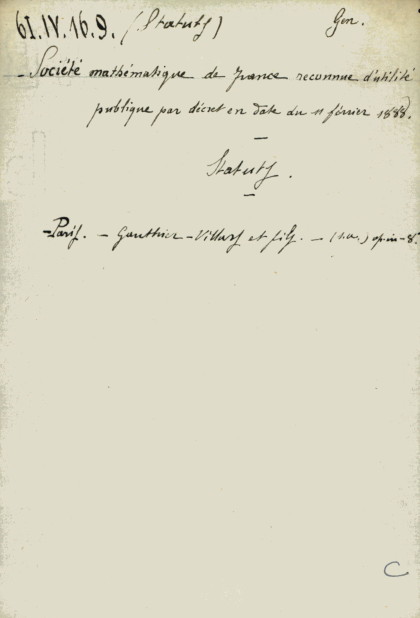 61.IV.16.9. (Statuts) Gen.
- Société mathématique de France reconnue d'utilité
publique par décret en date du 11 février 1888.
Statuts.
- Paris. - Gauthier-Villars et fils. - (s.a.) in-8°.
C